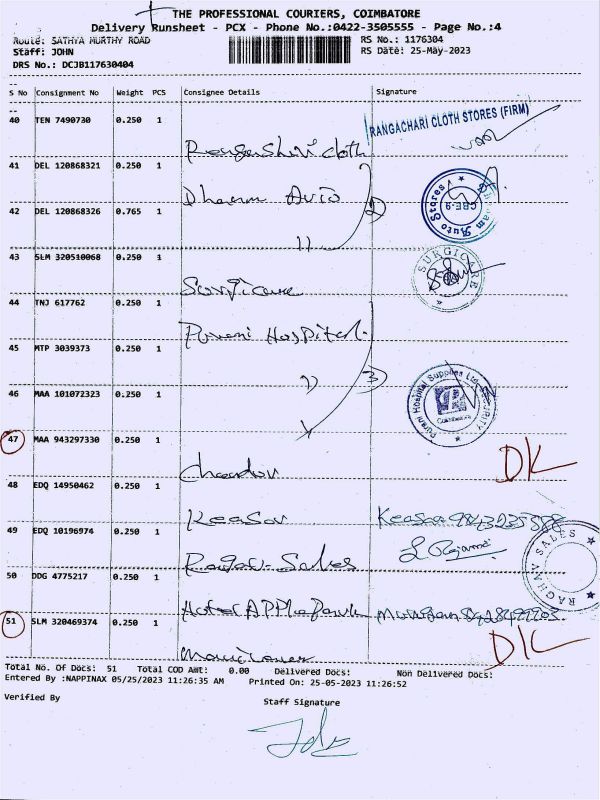 THE PROFESSIONAL COURIERS, COIMBATORE
Delivery Runsheet - PCX - Phone No.:0422-3505555 - Page No.:4
Route: SATHYA MURTHY ROAD
RS No.: 1176304
Staff: JOHN
RS Date: 25-May-2023
DRS No.: DCJB117630404
S No Consignment No Weight PCS Consignee Details Signature
40 TEN 7490730 0.250 1
RANGACHARI CLOTH STORES (FIRM)
41 DEL 120868321 0.250 1
Auto Stores
CBE-9
42 DEL 120868326 0.765 1
"
2
43 SLM 320510068 0.250 1
SURGICARE
44 TNJ 617762 0.250 1
Purani Hospital
45 MTP 3039373 0.250 1
"
3
46 MAA 101072323 0.250 1
Purani Hospital Supplies Ltd
SECURITY
Coimbatore
47 MAA 943297330 0.250 1
DK
48 EDQ 14950462 0.250 1
Keasar
Keasar
49 EDQ 10196974 0.250 1
Ragav Sales
RAGHAV SALES
50 DDG 4775217 0.250 1
Hotel APPle Park
Murugan
51 SLM 320469374 0.250 1
DK
Total No. Of Docs: 51 Total COD Amt: 0.00 Delivered Docs: Non Delivered Docs:
Entered By :NAPPINAX 05/25/2023 11:26:35 AM Printed On: 25-05-2023 11:26:52
Verified By
Staff Signature